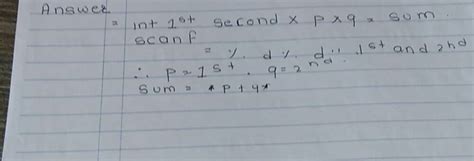 Answer
= int 1st second x p x q = sum.
scanf
= % d % d ". 1st and 2nd
∴ p = 1st . q = 2nd.
sum = *p + y*